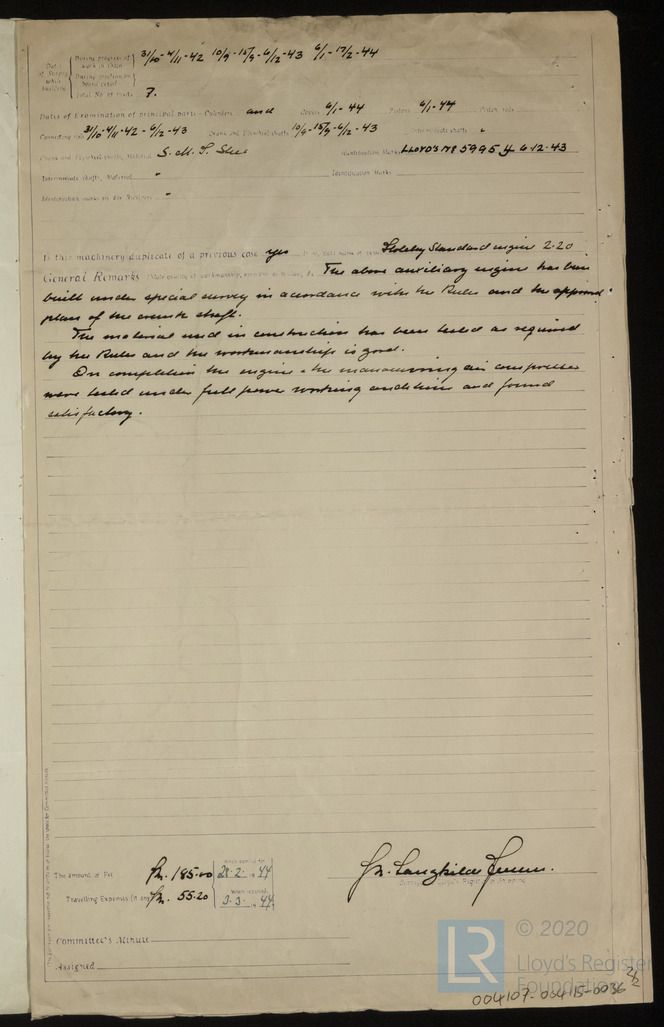 Dates of Survey while building
During progress of work in shops 31/10-4/11-42 10/9-15/9-6/12-43 6/1-17/2-44
During erection
Total No. of visits 7.
Dates of Examination of principal parts - Cylinders and Covers 6/1-44 Pistons 6/1-44 Piston rods
Connecting rods 31/10-4/11-42-6/12-43 Crank and Flywheel shafts 10/9-15/9-6/12-43 Intermediate shafts
Crank and Flywheel shafts, Material S.M.S. Steel Identification Marks LLOYD'S No 5995 6-12-43
Intermediate shafts, Material " Identification Marks
Identification marks on Air Receivers "
Is this machinery duplicate of a previous case yes Standard engine 2-20
General Remarks The above auxiliary engine has been
built under special survey in accordance with the Rules and the approved
plan of the crank shaft.
The material used in construction has been tested as required
by the Rules and the workmanship is good.
On completion the engine & the manoeuvring air compressor
were tested under full power working conditions and found
satisfactory.
The amount of Fee Kr. 185.00 When applied for 28.2.1944
Travelling Expenses (if any) Kr. 55.20 When received 3.3.1944
Committee's Minute
Assigned
LR
© 2020
Lloyd's Register
Foundation
004107-004115-0036 2/2